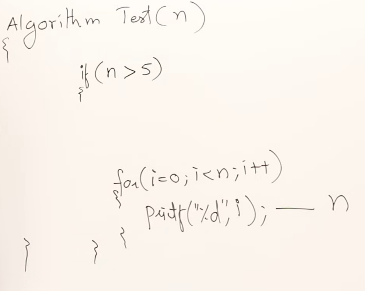 Algorithm Test(n)
{
if(n>5)
{
for(i=0;i<n;i++)
{
printf("%d",i); — n
}
} }